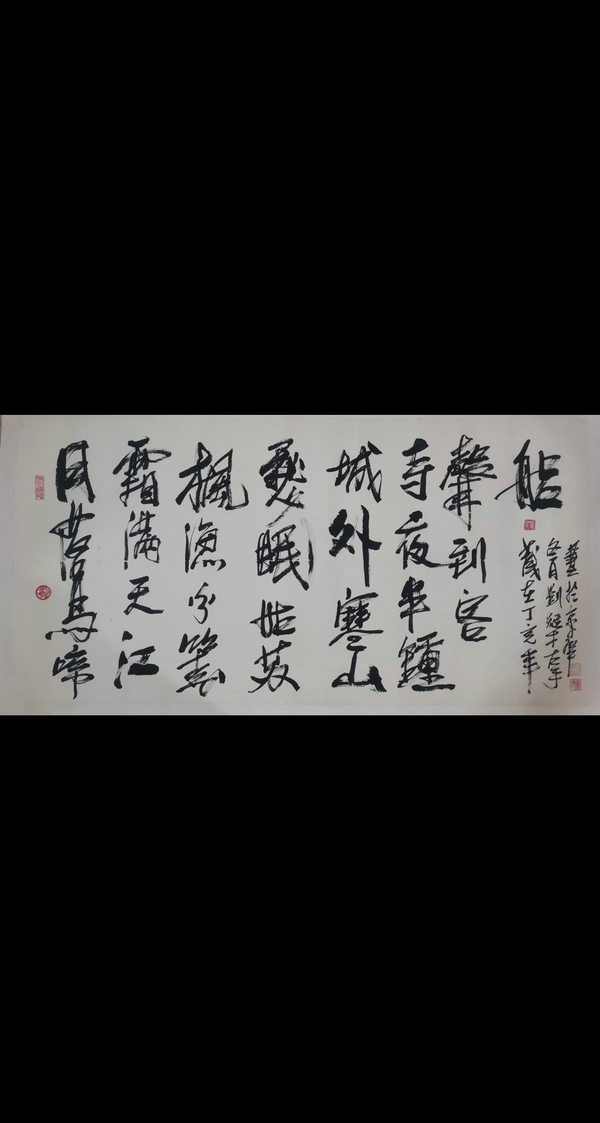 月落烏啼
霜滿天江
楓漁火對
愁眠姑蘇
城外寒山
寺夜半鐘
聲到客
船
歲在丁亥年
冬月劉繼才左手
書於京華